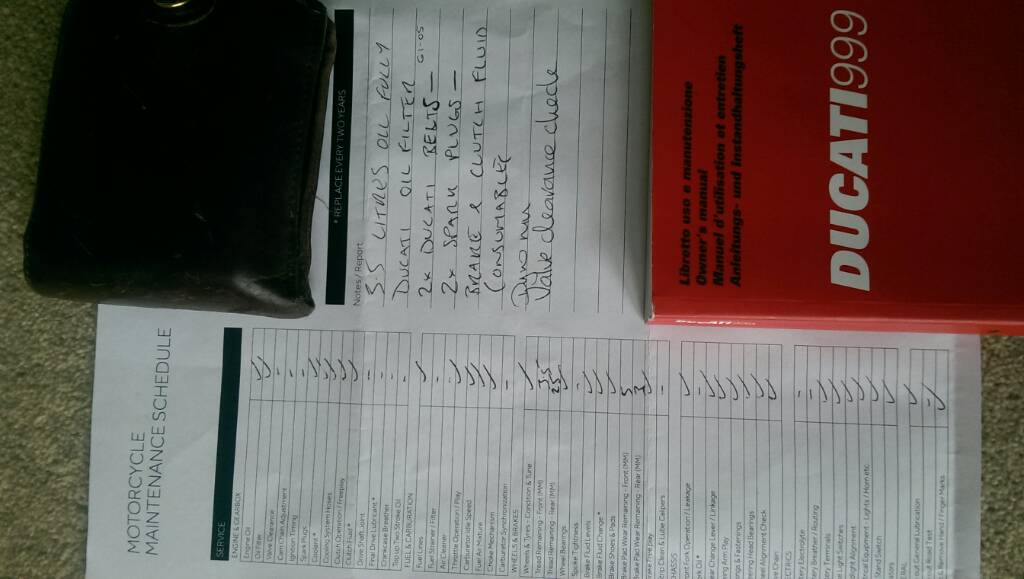 MOTORCYCLE
MAINTENANCE SCHEDULE
SERVICE
ENGINE & GEARBOX
Engine Oil
Oil Filter
Valve Clearance
Cam Chain Adjustment
Ignition Timing
Spark Plugs
Coolant *
Cooling System Hoses
Clutch Operation / Freeplay
Clutch Fluid *
Drive Shaft Joint
Final Drive Lubricant *
Crankcase Breather
Top up Two Stroke Oil
FUEL & CARBURATION
Fuel Lines
Fuel Strainer / Filter
Air Cleaner
Throttle Operation / Play
Carburetor Idle Speed
Fuel Air Mixture
Choke Mechanism
Carburetor Synchronisation
WHEELS & BRAKES
Wheels & Tyres - Condition & Type
Tread Remaining - Front (MM) 3.5
Tread Remaining - Rear (MM) 2.5
Wheel Bearings
Spoke Tightness
Brake Fluid Level
Brake Fluid Change *
Brake Shoes & Pads
Brake Pad Wear Remaining - Front (MM) 5
Brake Pad Wear Remaining - Rear (MM) 3
Brake Free play
Strip Clean & Lube Calipers
CHASSIS
Front Fork Operation / Leakage
Fork Oil *
Gear Change Lever / Linkage
Swing Arm Play
Fittings & Fastenings
Steering Head Bearings
Wheel Alignment Check
Drive Chain
Battery Electrolyte
Battery Breather / Routing
Battery Terminals
Light Switches
Headlight Alignment
Electrical Equipment - Lights / Horn etc
Stand Switch
General Lubrication
Road Test
Remove Hand / Finger Marks
* REPLACE EVERY TWO YEARS
Notes / Report
3.5 LITRES OIL FULLY
DUCATI OIL FILTER
2x DUCATI BELTS - 61-05
2x SPARK PLUGS -
BRAKE & CLUTCH FLUID
CONSUMABLE
Dyno run
Valve clearance check
Libretto uso e manutenzione
Owner's manual
Manuel d'utilisation et entretien
Anleitungs- und Instandhaltungsheft
DUCATI999
DUCATI999